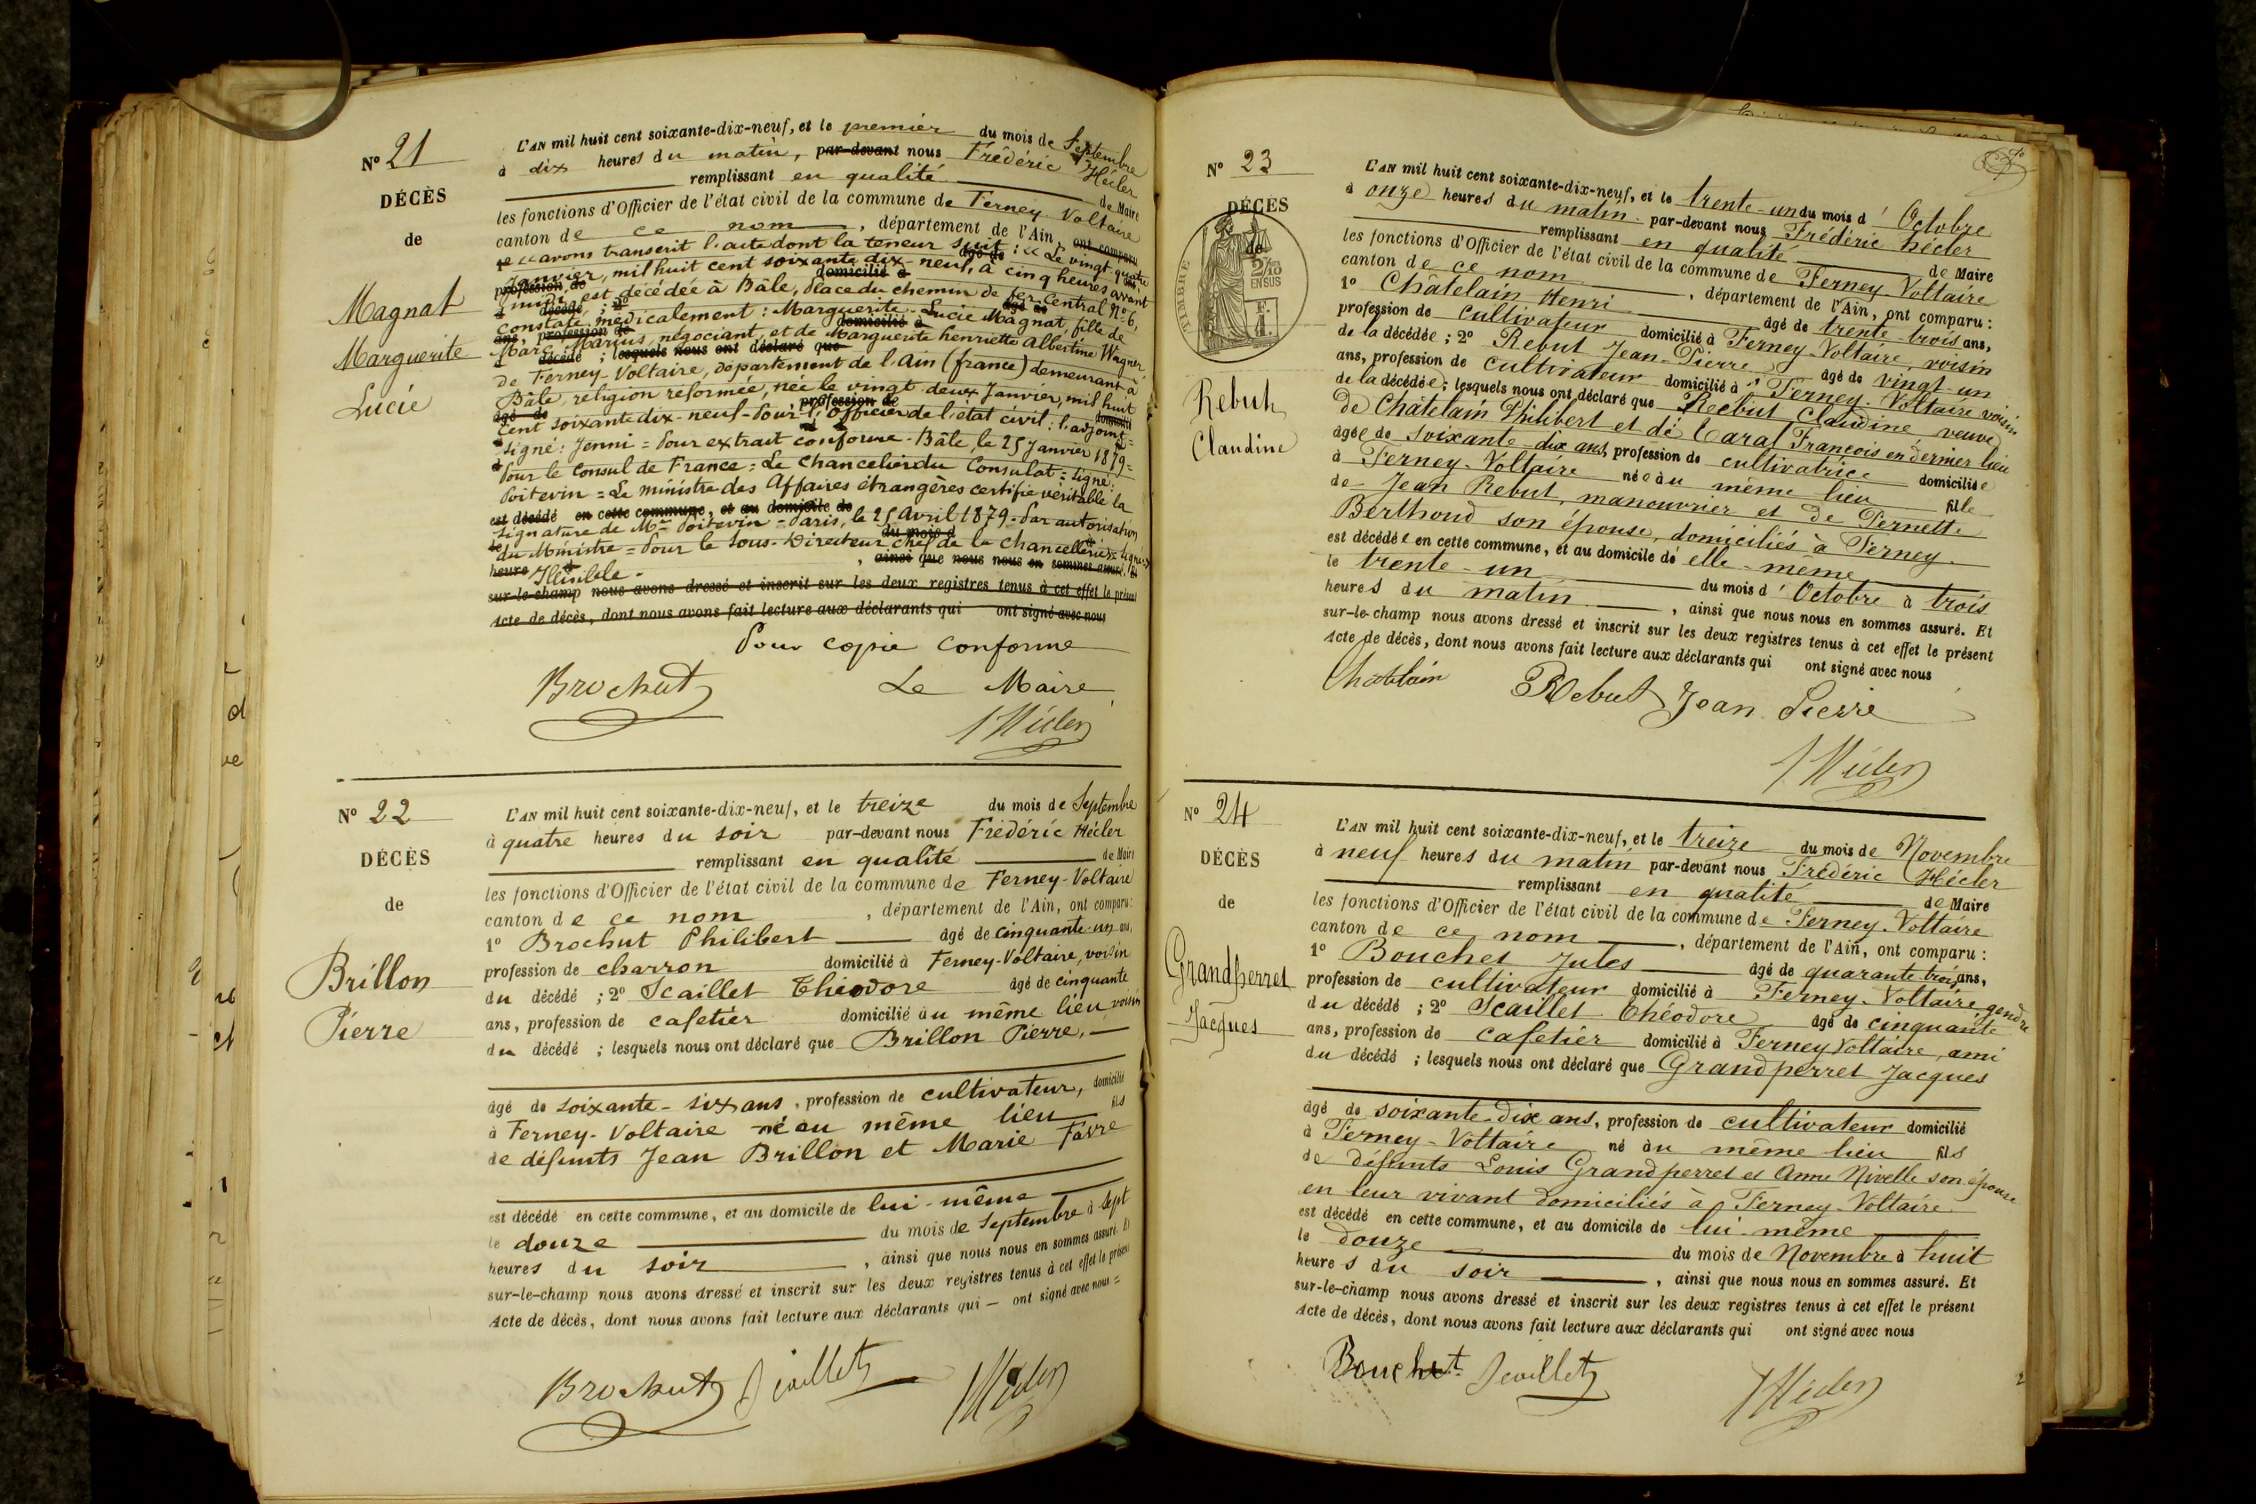 N° 21
DÉCÈS
de
Magnat
Marguerite
Lucie
L'AN mil huit cent soixante-dix-neuf, et le premier du mois de Septembre
à dix heures du matin, par-devant nous Frédéric Hécler
remplissant en qualité de Maire
les fonctions d'Officier de l'état civil de la commune de Ferney Voltaire
canton de ce nom, département de l'Ain, ont comparu
avons transcrit l'acte dont la teneur suit : "Le vingt-quatre
Janvier, mil huit cent soixante dix-neuf, à cinq heures avant
midi, est décédée à Bâle, place du chemin de fer Central N° 6,
constaté médicalement : Marguerite-Lucie Magnat, fille de
Marc Marius, négociant, et de Marguerite henriette Albertine Wagner
de Ferney-Voltaire, département de l'Ain (france) demeurant à
Bâle, religion réformée, née le vingt-deux Janvier, mil huit
cent soixante dix-neuf - Pour l'officier de l'état civil : l'adjoint =
signé : Jenni = Pour extrait conforme - Bâle, le 25 Janvier 1879 =
Pour le Consul de France : Le Chancelier du Consulat = Signé :
Poitevin = Le ministre des Affaires étrangères certifie véritable la
signature de Mr Poitevin = Paris, le 25 Avril 1879 - Par autorisation
du Ministre = Pour le Sous-Directeur chef de la chancellerie = Signé :
Illisible -
sur-le-champ nous avons dressé et inscrit sur les deux registres tenus à cet effet le présent
Acte de décès, dont nous avons fait lecture aux déclarants qui ont signé avec nous
Pour copie conforme
Brochut Le Maire
Hécler
N° 22
DÉCÈS
de
Brillon
Pierre
L'AN mil huit cent soixante-dix-neuf, et le treize du mois de Septembre
à quatre heures du soir par-devant nous Frédéric Hécler
remplissant en qualité de Maire
les fonctions d'Officier de l'état civil de la commune de Ferney-Voltaire
canton de ce nom, département de l'Ain, ont comparu :
1° Brochut Philibert âgé de cinquante-un ans,
profession de charron domicilié à Ferney-Voltaire, voisin
du décédé ; 2° Scaillet Théodore âgé de cinquante
ans, profession de cafetier domicilié au même lieu, voisin
du décédé ; lesquels nous ont déclaré que Brillon Pierre,
âgé de soixante-six ans, profession de cultivateur, domicilié
à Ferney-Voltaire né au même lieu fils
de défunts Jean Brillon et Marie Favre
est décédé en cette commune, et au domicile de lui-même
le douze du mois de Septembre à sept
heures du soir, ainsi que nous nous en sommes assuré. Et
sur-le-champ nous avons dressé et inscrit sur les deux registres tenus à cet effet le présent
Acte de décès, dont nous avons fait lecture aux déclarants qui — ont signé avec nous =
Brochut Scaillet Hécler
N° 23
DÉCÈS
de
TIMBRE
2/10
EN SUS
Rebut
Claudine
L'AN mil huit cent soixante-dix-neuf, et le trente-un du mois d'Octobre
à onze heures du matin par-devant nous Frédéric Hécler
remplissant en qualité de Maire
les fonctions d'Officier de l'état civil de la commune de Ferney-Voltaire
canton de ce nom, département de l'Ain, ont comparu :
1° Châtelain Henri âgé de trente-trois ans,
profession de cultivateur domicilié à Ferney-Voltaire, voisin
de la décédée ; 2° Rebut Jean-Pierre âgé de vingt-un
ans, profession de cultivateur domicilié à Ferney-Voltaire voisin
de la décédée ; lesquels nous ont déclaré que Rebut Claudine veuve
de Châtelain Philibert et de Caral François en dernier lieu
âgée de soixante-dix ans, profession de cultivatrice domiciliée
à Ferney-Voltaire née au même lieu fille
de Jean Rebut, manouvrier et de Pernette
Berthoud son épouse, domiciliés à Ferney
est décédée en cette commune, et au domicile de elle-même
le trente-un du mois d'Octobre à trois
heures du matin, ainsi que nous nous en sommes assuré. Et
sur-le-champ nous avons dressé et inscrit sur les deux registres tenus à cet effet le présent
Acte de décès, dont nous avons fait lecture aux déclarants qui ont signé avec nous
Chatelain Rebut Jean Pierre
Hécler
N° 24
DÉCÈS
de
Grandperret
Jacques
L'AN mil huit cent soixante-dix-neuf, et le treize du mois de Novembre
à neuf heures du matin par-devant nous Frédéric Hécler
remplissant en qualité de Maire
les fonctions d'Officier de l'état civil de la commune de Ferney-Voltaire
canton de ce nom, département de l'Ain, ont comparu :
1° Bouchet Jules âgé de quarante-trois ans,
profession de cultivateur domicilié à Ferney-Voltaire, gendre
du décédé ; 2° Scaillet Théodore âgé de cinquante
ans, profession de cafetier domicilié à Ferney Voltaire, ami
du décédé ; lesquels nous ont déclaré que Grandperret Jacques
âgé de soixante-dix ans, profession de cultivateur domicilié
à Ferney-Voltaire né au même lieu fils
de défunts Louis Grandperret et Anne Nivelle son épouse
en leur vivant domiciliés à Ferney-Voltaire
est décédé en cette commune, et au domicile de lui-même
le douze du mois de Novembre à huit
heures du soir, ainsi que nous nous en sommes assuré. Et
sur-le-champ nous avons dressé et inscrit sur les deux registres tenus à cet effet le présent
Acte de décès, dont nous avons fait lecture aux déclarants qui ont signé avec nous
Bouchet Scaillet Hécler